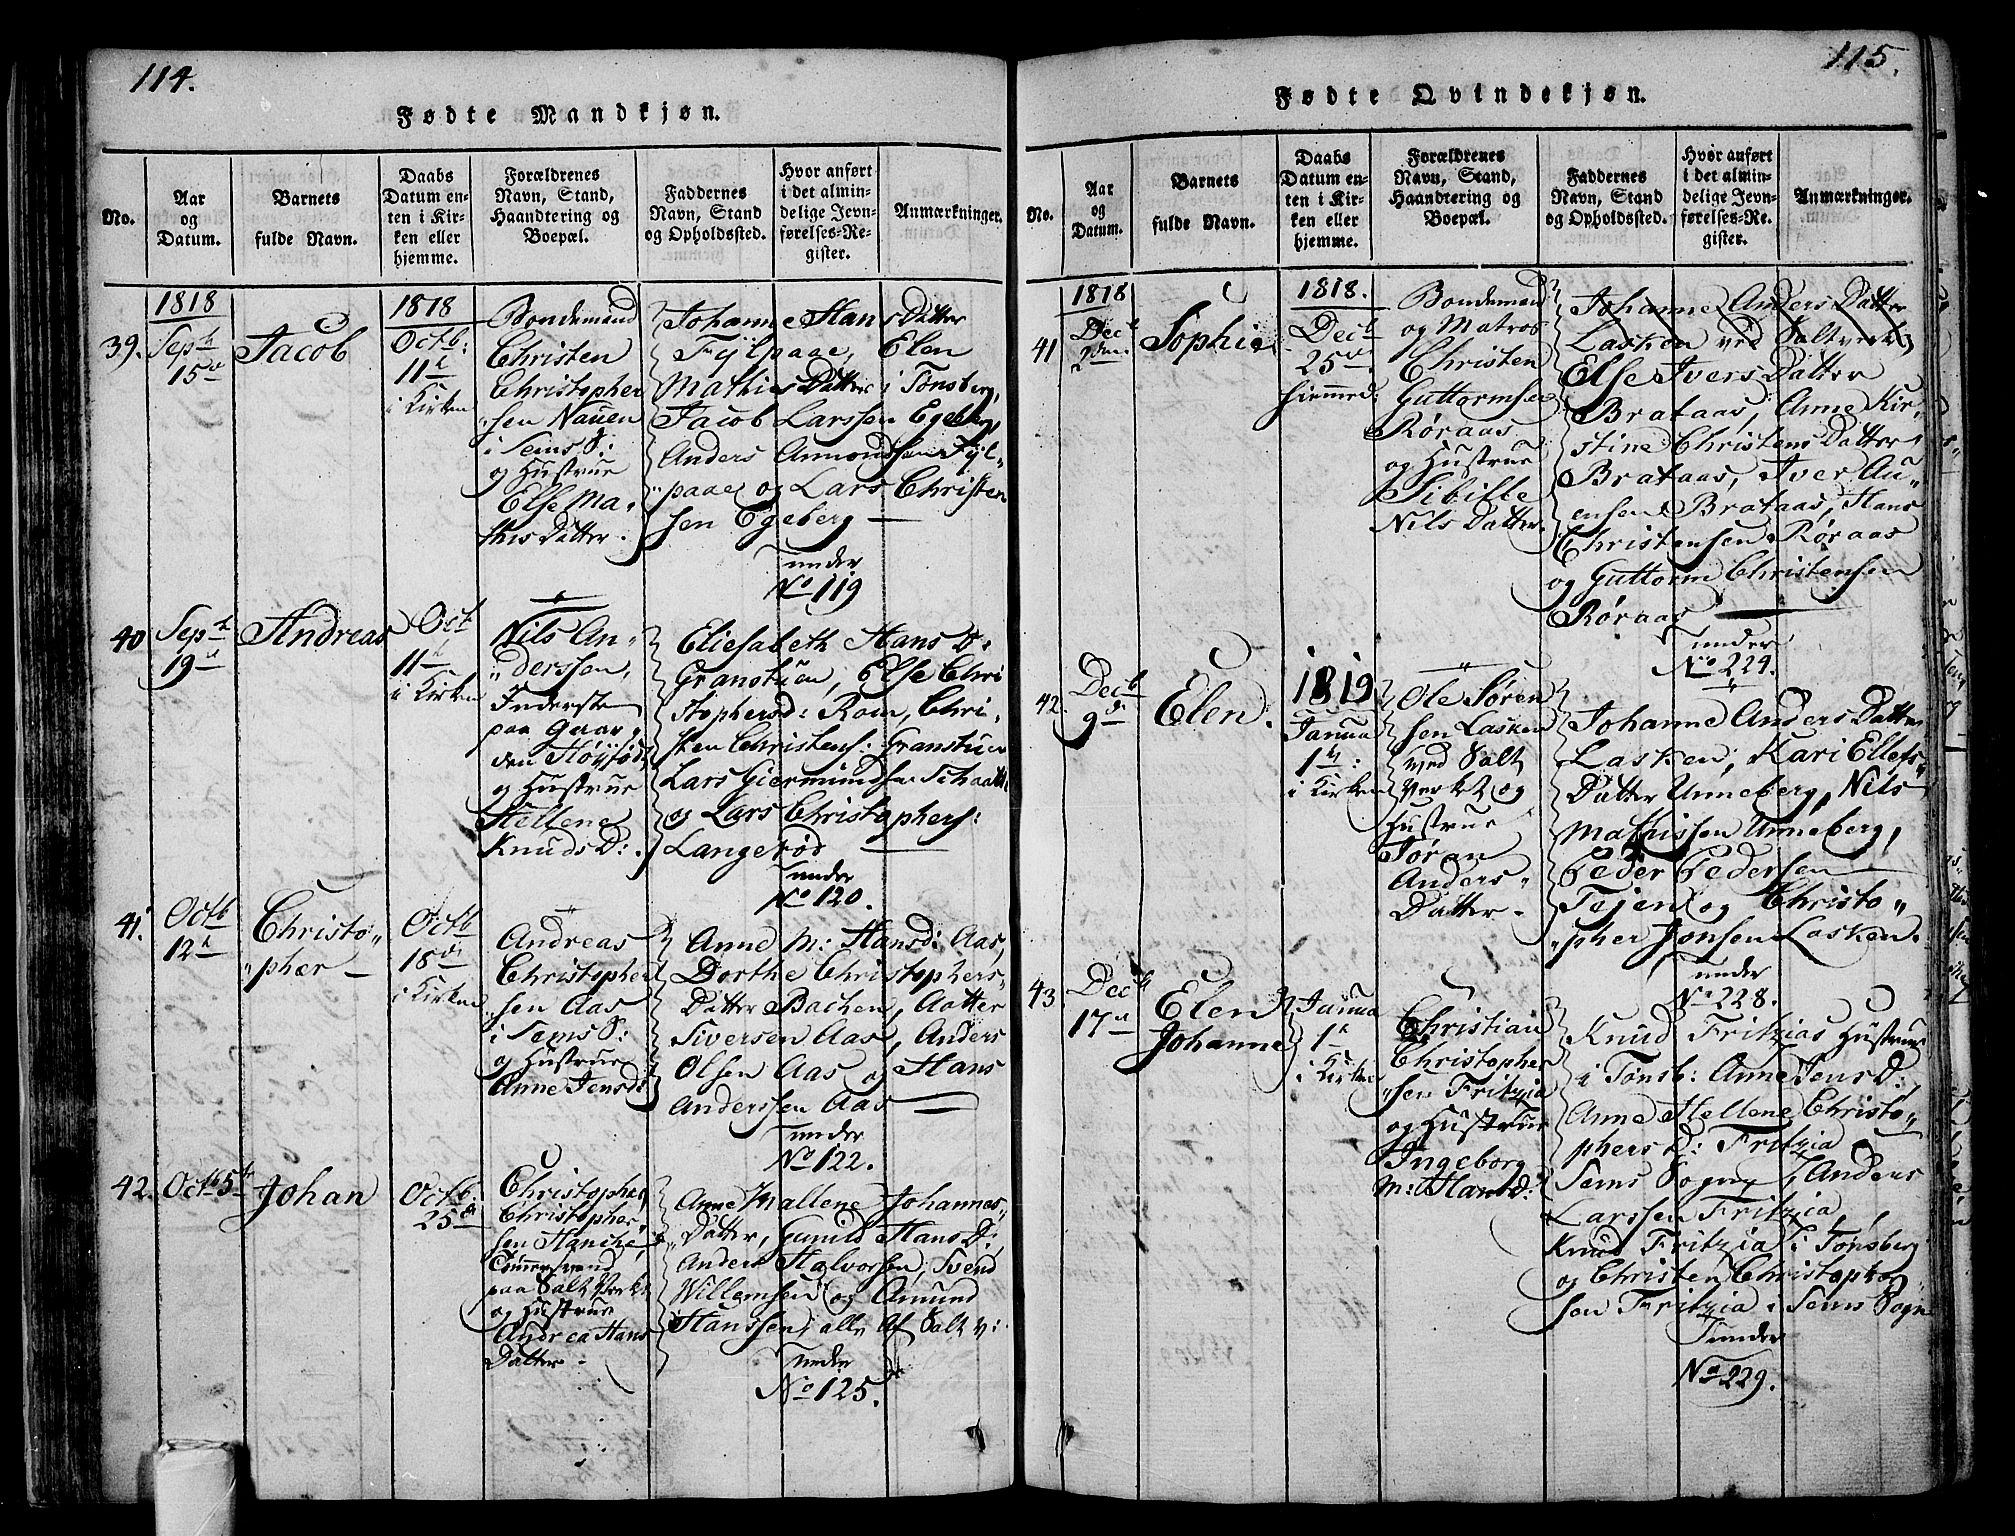 114.
Fødte Mandkjøn.
No.
Aar
og
Datum.
Barnets
fulde Navn.
Daabs
Datum en-
ten i Kir-
ken eller
hjemme.
Forældrenes
Navn, Stand,
Haandtering og
Boepæl.
Faddernes
Navn, Stand
og Opholdssted.
Hvor anført
i det almin-
delige Jevn-
førelses-Re-
gister.
Anmærkninger.
39.
1818
Septb
15de
Jacob
1818
Octb:
11te
i Kirken
Bondemand
Christen
Christopher
"sen Nauen
i Sems S:
og Hustrue
Else Ma-
thisDatter.
Johanne Hans Datter
Fÿlpaae, Elen
Mathis Datter i Tønsberg,
Jacob Larssen Egeberg,
Anders Amondssen Fÿl-
"paae og Lars Christen
sen Egeberg
under
No 119
40
Septb
19de
Andreas
Octb
11te
i Kirken
Nils An-
"derssen,
Inderste
paa Gaar-
den Høÿsød,
og Hustrue
Hellene
Knuds D:.
Eliesabeth Hans D:
Granstuen, Else Chri
stophersd: Rom, Chri-
sten Christens: Granstuen
Lars Giermundsen
og Lars Christophers:
Langerød
under
No 120.
41.
Octb
12te
Christo"
"phær
Octb
18de
i Kirken
Andreas
Christopher
"sen Aas
i Sems S:
og Hustrue
Anne Jensd:
Anne M: Hansd: Aas,
Dorthe Christophers-
Datter Bachen, Aatter
Siversen Aas, Anders
Olsen Aas og Hans
Anderssen Aas
under
No 122.
42.
Octb 5te
Johan
Octb:
25de
Christopher
Christopher
sen Hanche,
Tømmermand
paa Salt Verket
og Hustrue
Andrea Hans
Datter
Anne Mallene Johannes"
"Datter, Gunild Hans D:
Anders Halvorsen, Svend
Willemsen og Amund
Hanssen, alle Af Salt V:
under
No 125.
115.
Fødte Qvindekjøn.
No.
Aar
og
Datum.
Barnets
fulde Navn.
Daabs
Datum en-
ten i Kir-
ken eller
hjemme.
Forældrenes
Navn, Stand,
Haandtering og
Boepæl.
Faddernes
Navn, Stand
og Opholdssted.
Hvor anført
i det almin-
delige Jevn-
førelses-Re-
gister.
Anmærkninger.
41
1818
Decb
2den.
Sophie
1818.
Decb
25de
hiemmed:
Bondemand
og Matros
Christen
Guttormsen
Røraas
og Hustrue
Sibille
Nils Datter.
Johanne Anders Datter
Lasken ved Saltverket,
Else Ivers Datter
Brataas, Anne Kir-
stine Christens Datter
Brataas, Iver Au-
ensen Brataas, Hans
Christensen Røraas
og Guttorm Christensen
Røraas
under
No 224.
42.
Decb
9de
Elen.
1819
Janua
1te:
i Kirken
Ole Søren
sen Lasken
ved Salt
Verket og
Hustrue
Søran
Anders"
Datter.
Johanne Anders Datter
Lasken, Kari Ellefs"
Datter Unneberg, Nils
Mathissen Unneberg,
Peder Pedersen
Tejen og Christo"
"pher Jonsen Lasken.
under
No 228.
43
Decb
17de
Elen
Johanne
Janua
1te
i Kirken
Christian
Christopher
"sen Fritzia
og Hustrue
Ingeborg
M: Hansd:
Knud Fritzias Hustrue
i Tønsb: Anne Jens D:
Anne Hellene Christo"
phers D: Fritzia
Sems Sogn, Anders
Larssen Fritzia,
Knud Fritzia i Tønsberg
og Christen Christopher
sen Fritzia i Sems Sogn
under
No 229.